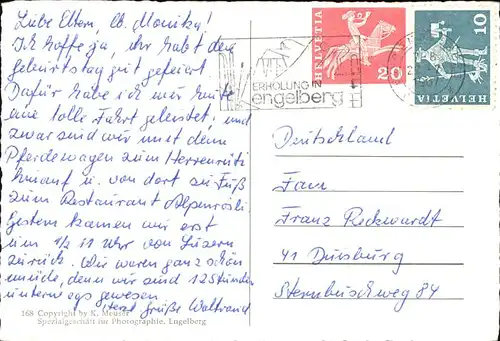 Liebe Eltern lb. Monika!
Ich hoffe ja, ihr habt den
Geburtstag gut gefeiert.
Dafür habe ich mir heute
eine tolle Fahrt geleistet, und
zwar sind wir mit dem
Pferdewagen zum Herrenrüti
hinauf u. von dort zu Fuß
zum Restaurant Alpenrösli.
Gestern kamen wir erst
um 1/2 11 Uhr von Luzern
zurück. Wir waren ganz schön
müde, denn wir sind 12 Stunden
unterwegs gewesen
Grüße Waltraud
168 Copyright by K. Meuser
Spezialgeschäft für Photographie, Engelberg
ERHOLUNG IN
engelberg
HELVETIA
20
10
HELVETIA
Deutschland
Fam
Franz Reckwardt
41 Duisburg
Sternbuschweg 84